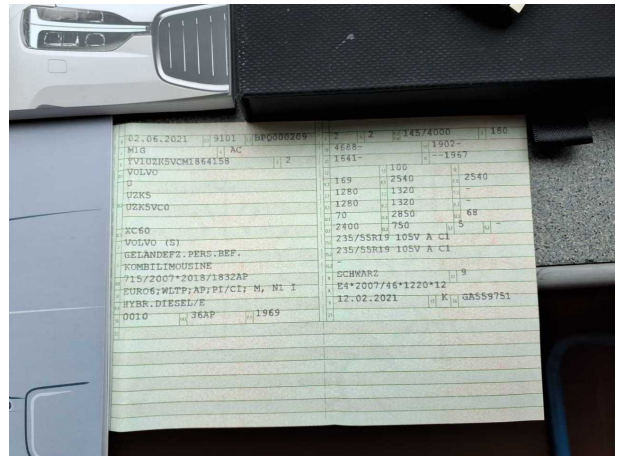 02.06.2021 9101 BPQ000209
M1G AC
YV1UZK5VCM1864158 2
VOLVO
U
UZK5
UZK5VC0
XC60
VOLVO (S)
GELÄNDEFZ.PERS.BEF.
KOMBILIMOUSINE
715/2007*2018/1832AP
EURO6;WLTP;AP;PI/CI; M, N1 I
HYBR.DIESEL/E
0010 36AP 1969
2 2 145/4000 180
4688- 1902-
1641- --1967
100
169 2540 2540
1280 1320 -
1280 1320 -
70 2850 68
2400 750 5 -
235/55R19 105V A C1
235/55R19 105V A C1
-
SCHWARZ 9
E4*2007/46*1220*12
12.02.2021 K GA559751